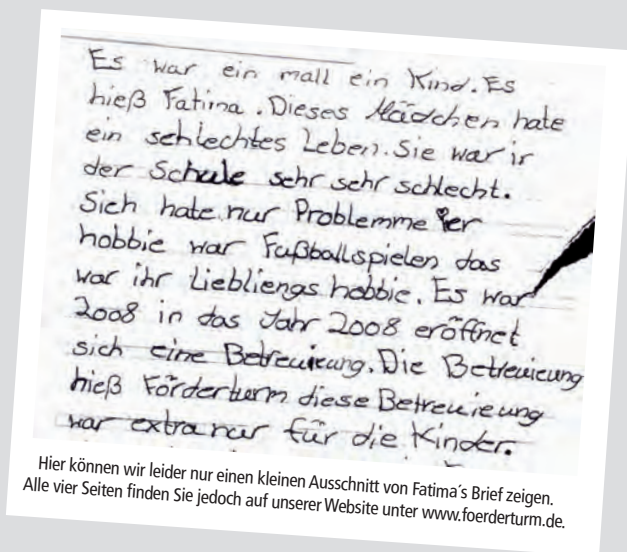 Es war ein mall ein Kind. Es
hieß Fatima. Dieses Mädchen hate
ein schlechtes Leben. Sie war in
der Schule sehr sehr schlecht.
Sich hate nur Problemme ier
hobbie war Fußballspielen das
war ihr Liebliengs hobbie. Es war
2008 in das Jahr 2008 eröffnet
sich eine Betreuieung. Die Betreuieung
hieß Förderturm diese Betreuieung
war extra nur für die Kinder.
Hier können wir leider nur einen kleinen Ausschnitt von Fatima´s Brief zeigen.
Alle vier Seiten finden Sie jedoch auf unserer Website unter www.foerderturm.de.